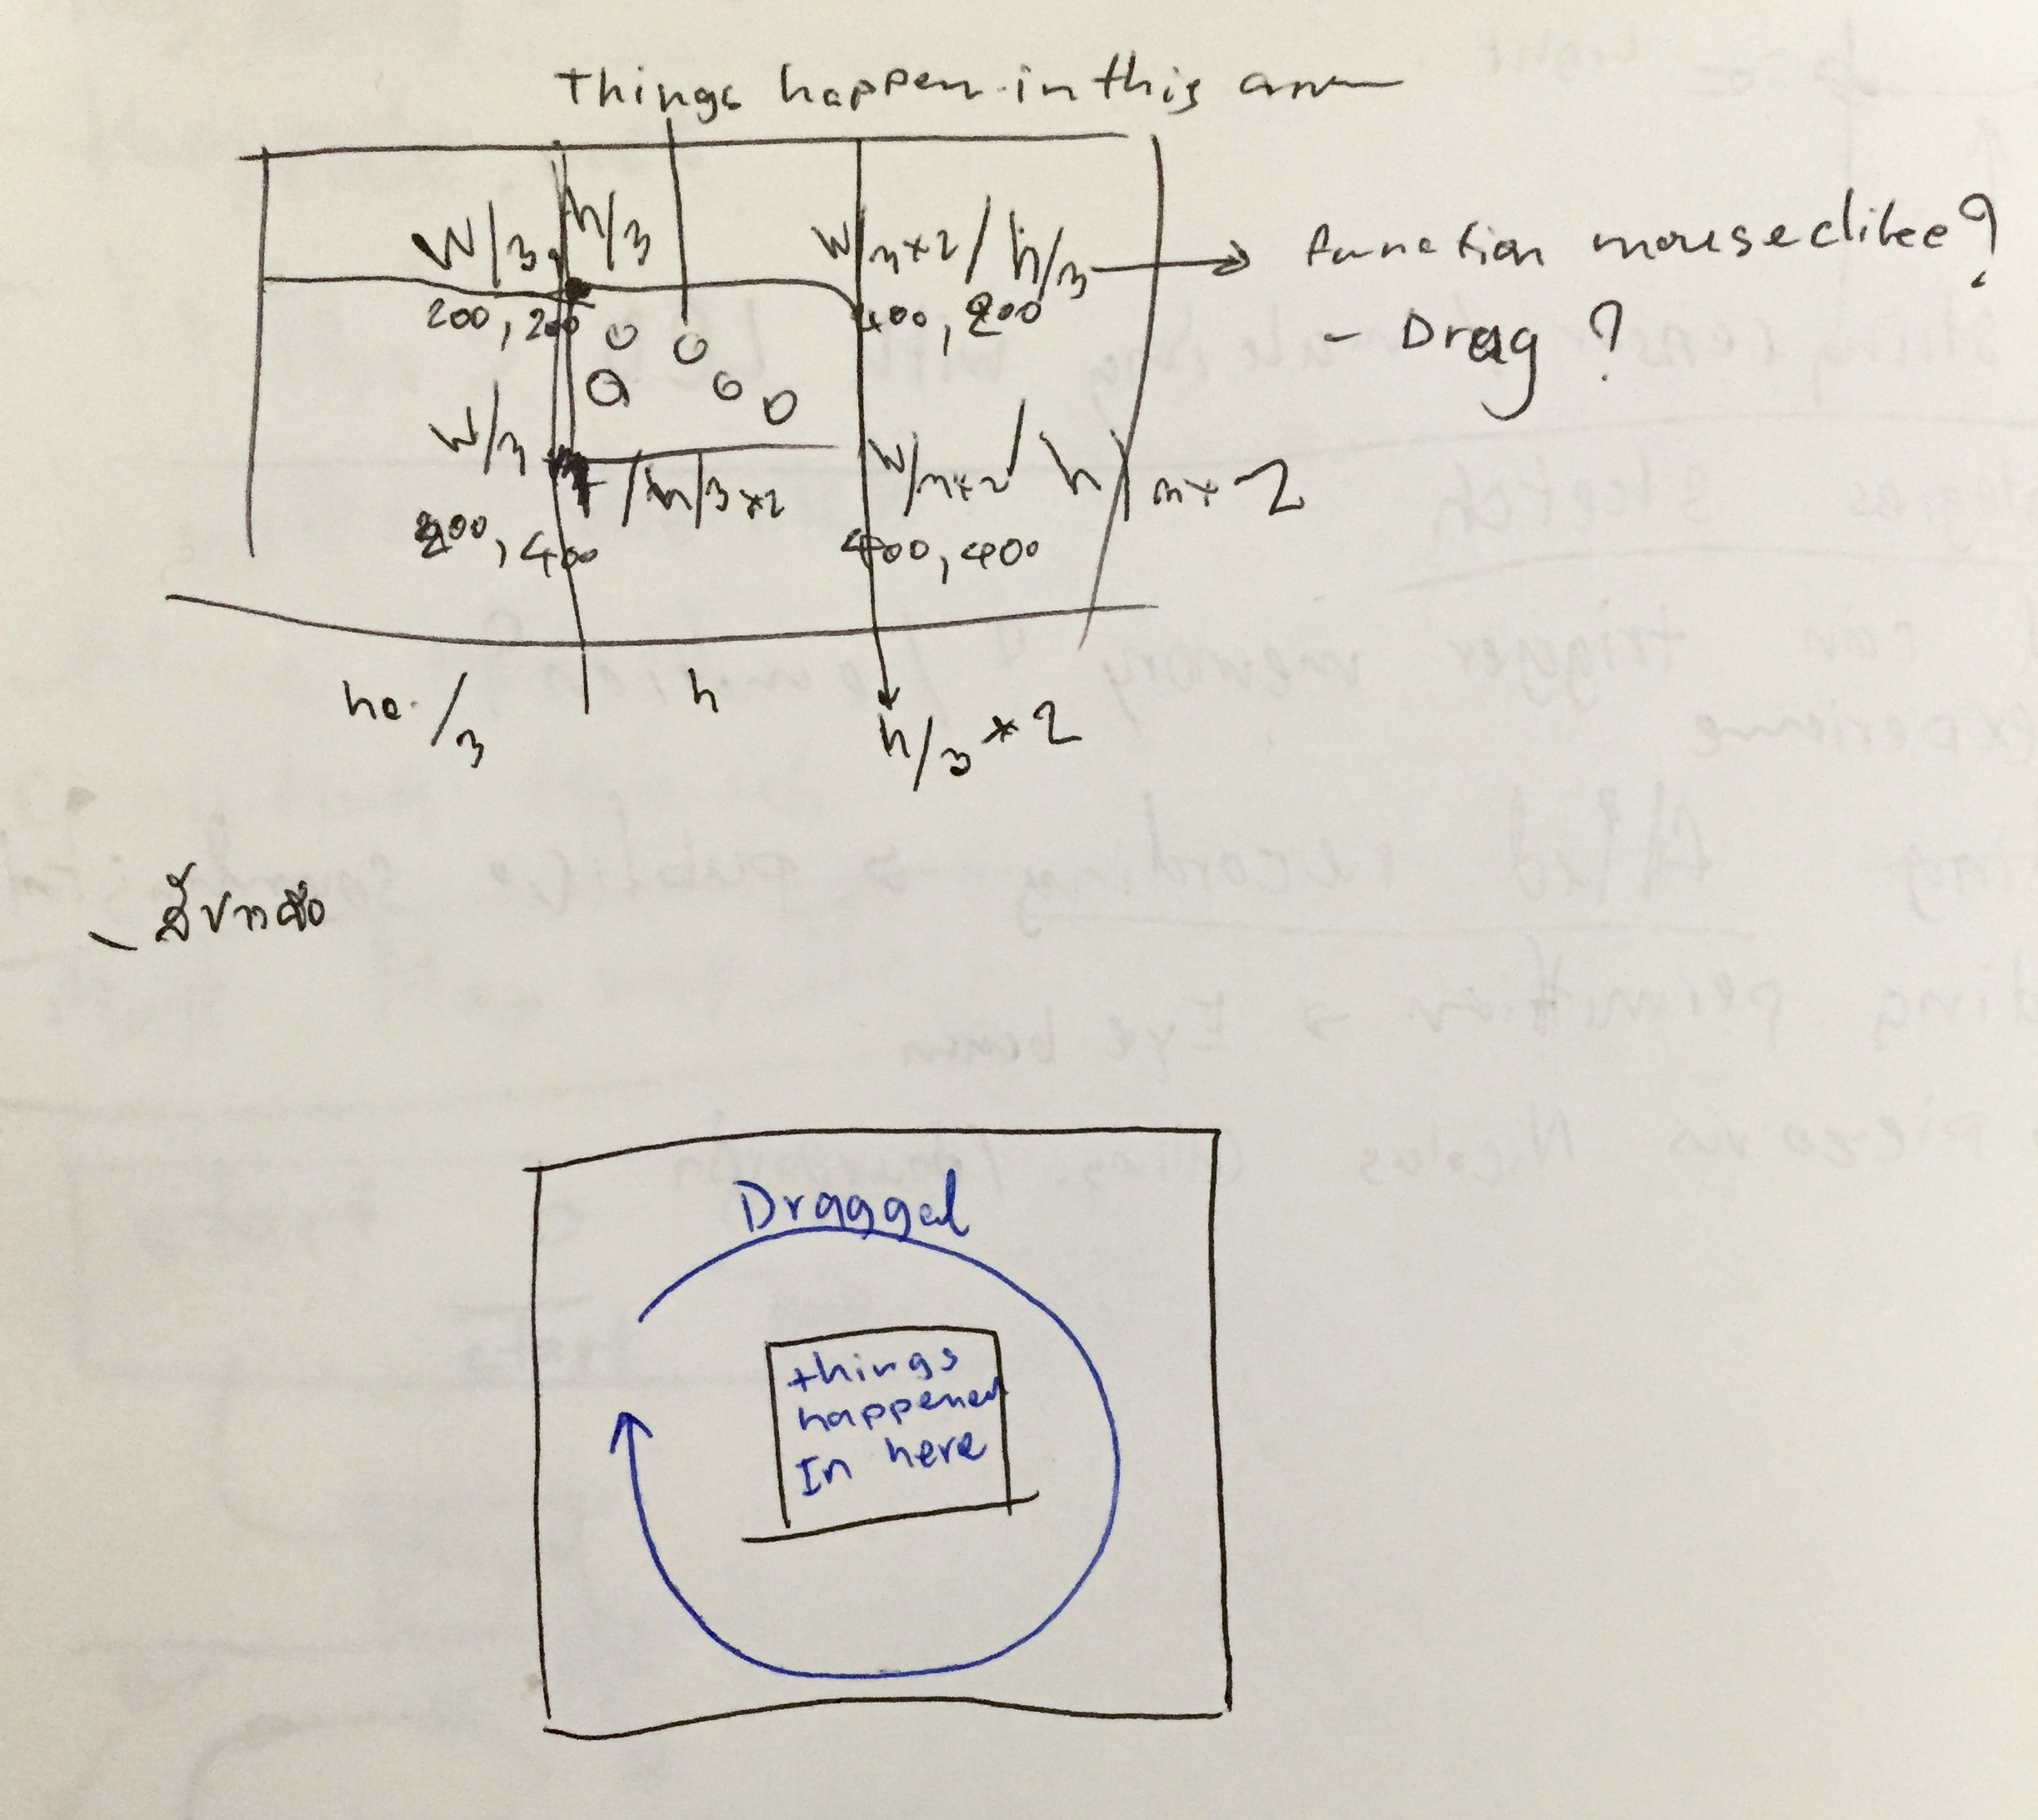 Things happen in this
W/3, h/3
W/3×2 / h/3
function mouseclike?
200, 200
400, 200
- Drag ?
W/3
/ h/3×2
W/3×2 / h/3×2
200, 400
400, 400
/3
h
h/3 * 2
Draggal
things
happened
In here